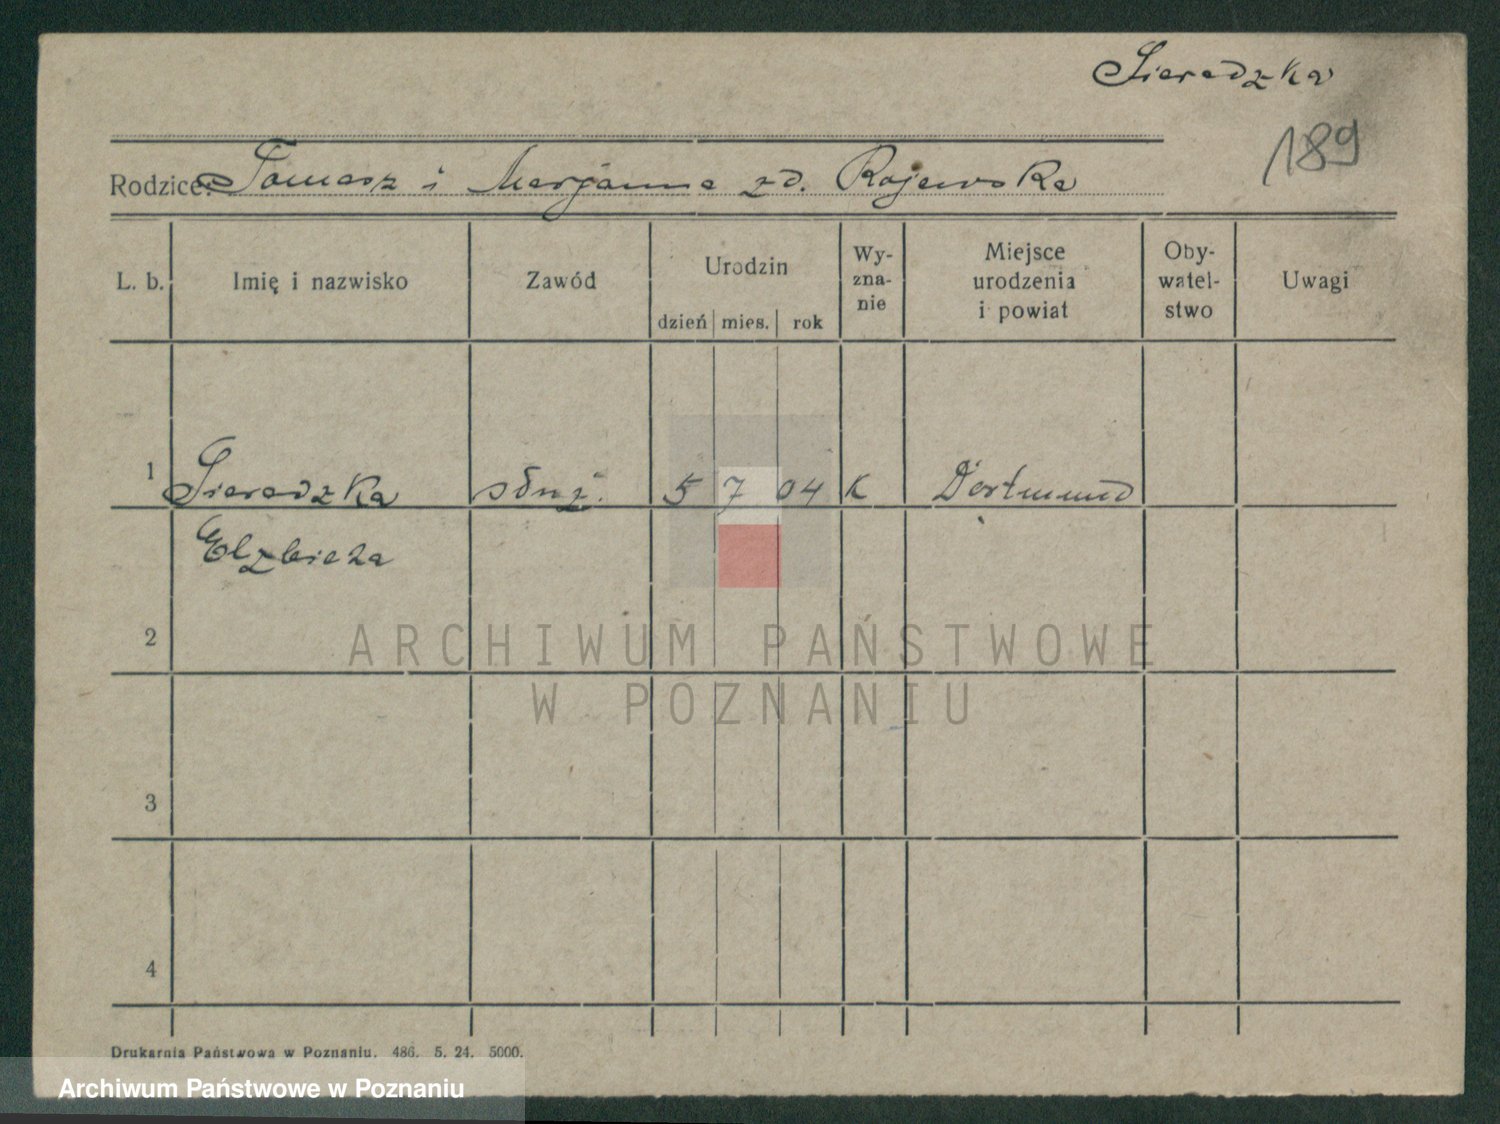 Sieradzka
189
Rodzice: Tomasz i Marjanna zd. Rajewska
L. b.
Imię i nazwisko
Zawód
Urodzin
dzień mies. rok
Wy-
zna-
nie
Miejsce
urodzenia
i powiat
Oby-
watel-
stwo
Uwagi
1 Sieradzka służ. 5 7 04 K Dortmund
Elżbieta
2
3
4
ARCHIWUM PAŃSTWOWE
W POZNANIU
Drukarnia Państwowa w Poznaniu. 486. 5. 24. 5000.
Archiwum Państwowe w Poznaniu